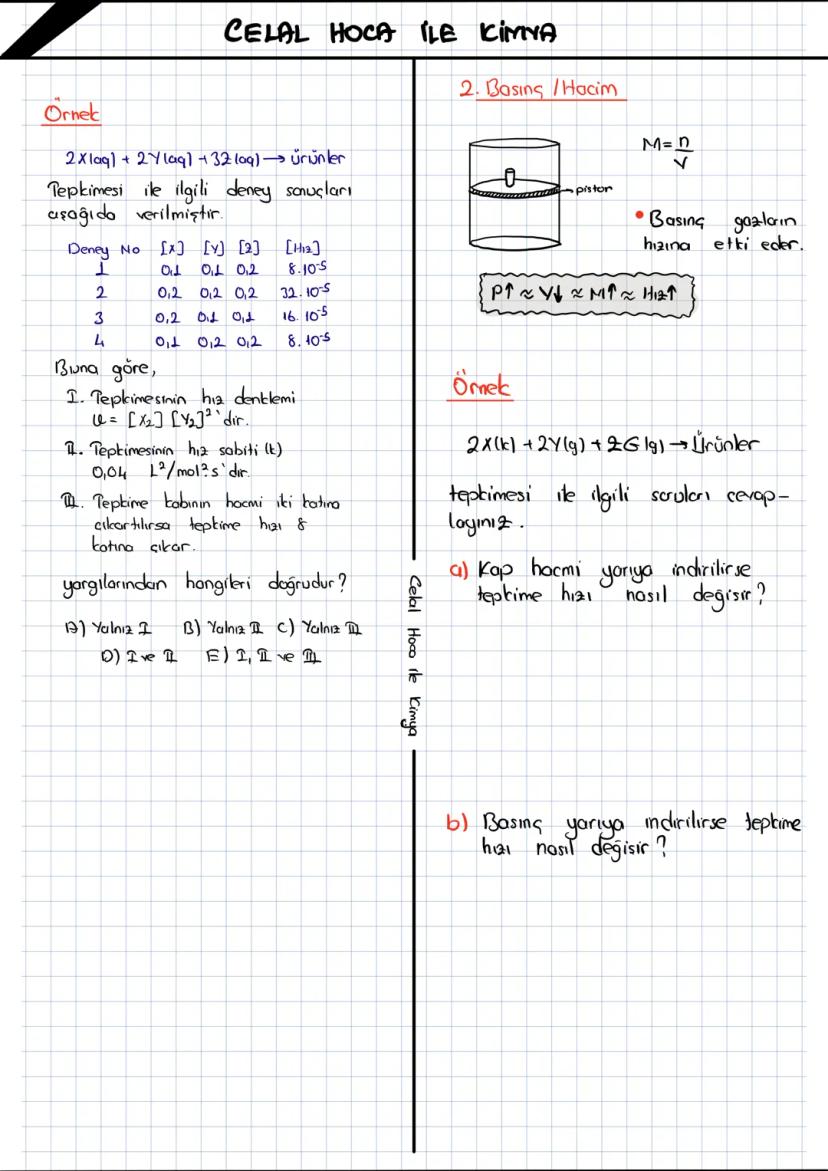 CELAL HOCA İLE KİMYA
Örnek
2X(aq) + 2Y(aq) + 3Z(aq) → ürünler
Tepkimesi ile ilgili deney sonuçları
aşağıda verilmiştir.
Deney No [X] [Y] [Z] [Hız]
1 0,1 0,1 0,2 8.10⁻⁵
2 0,2 0,2 0,2 32.10⁻⁵
3 0,2 0,1 0,1 16.10⁻⁵
4 0,1 0,2 0,2 8.10⁻⁵
Buna göre,
I. Tepkimesinin hız denklemi
ϑ = [X₂] [Y₂]²'dir.
II. Tepkimesinin hız sabiti (k)
0,04 L²/mol².s'dir.
III. Tepkime kabının hacmi iki katına
çıkartılırsa tepkime hızı 8
katına çıkar.
yargılarından hangileri doğrudur?
A) Yalnız I B) Yalnız II C) Yalnız III
D) I ve II E) I, II ve III
Celal Hoca ile Kimya
2. Basınç / Hacim
piston
M = n/V
• Basınç gazların
hızına etki eder.
P↑ ≈ V↓ ≈ M↑ ≈ Hız↑
Örnek
2X(k) + 2Y(g) + 2G(g) → Ürünler
tepkimesi ile ilgili soruları cevap-
layınız.
a) Kap hacmi yarıya indirilirse
tepkime hızı nasıl değişir?
b) Basınç yarıya indirilirse tepkime
hızı nasıl değişir?